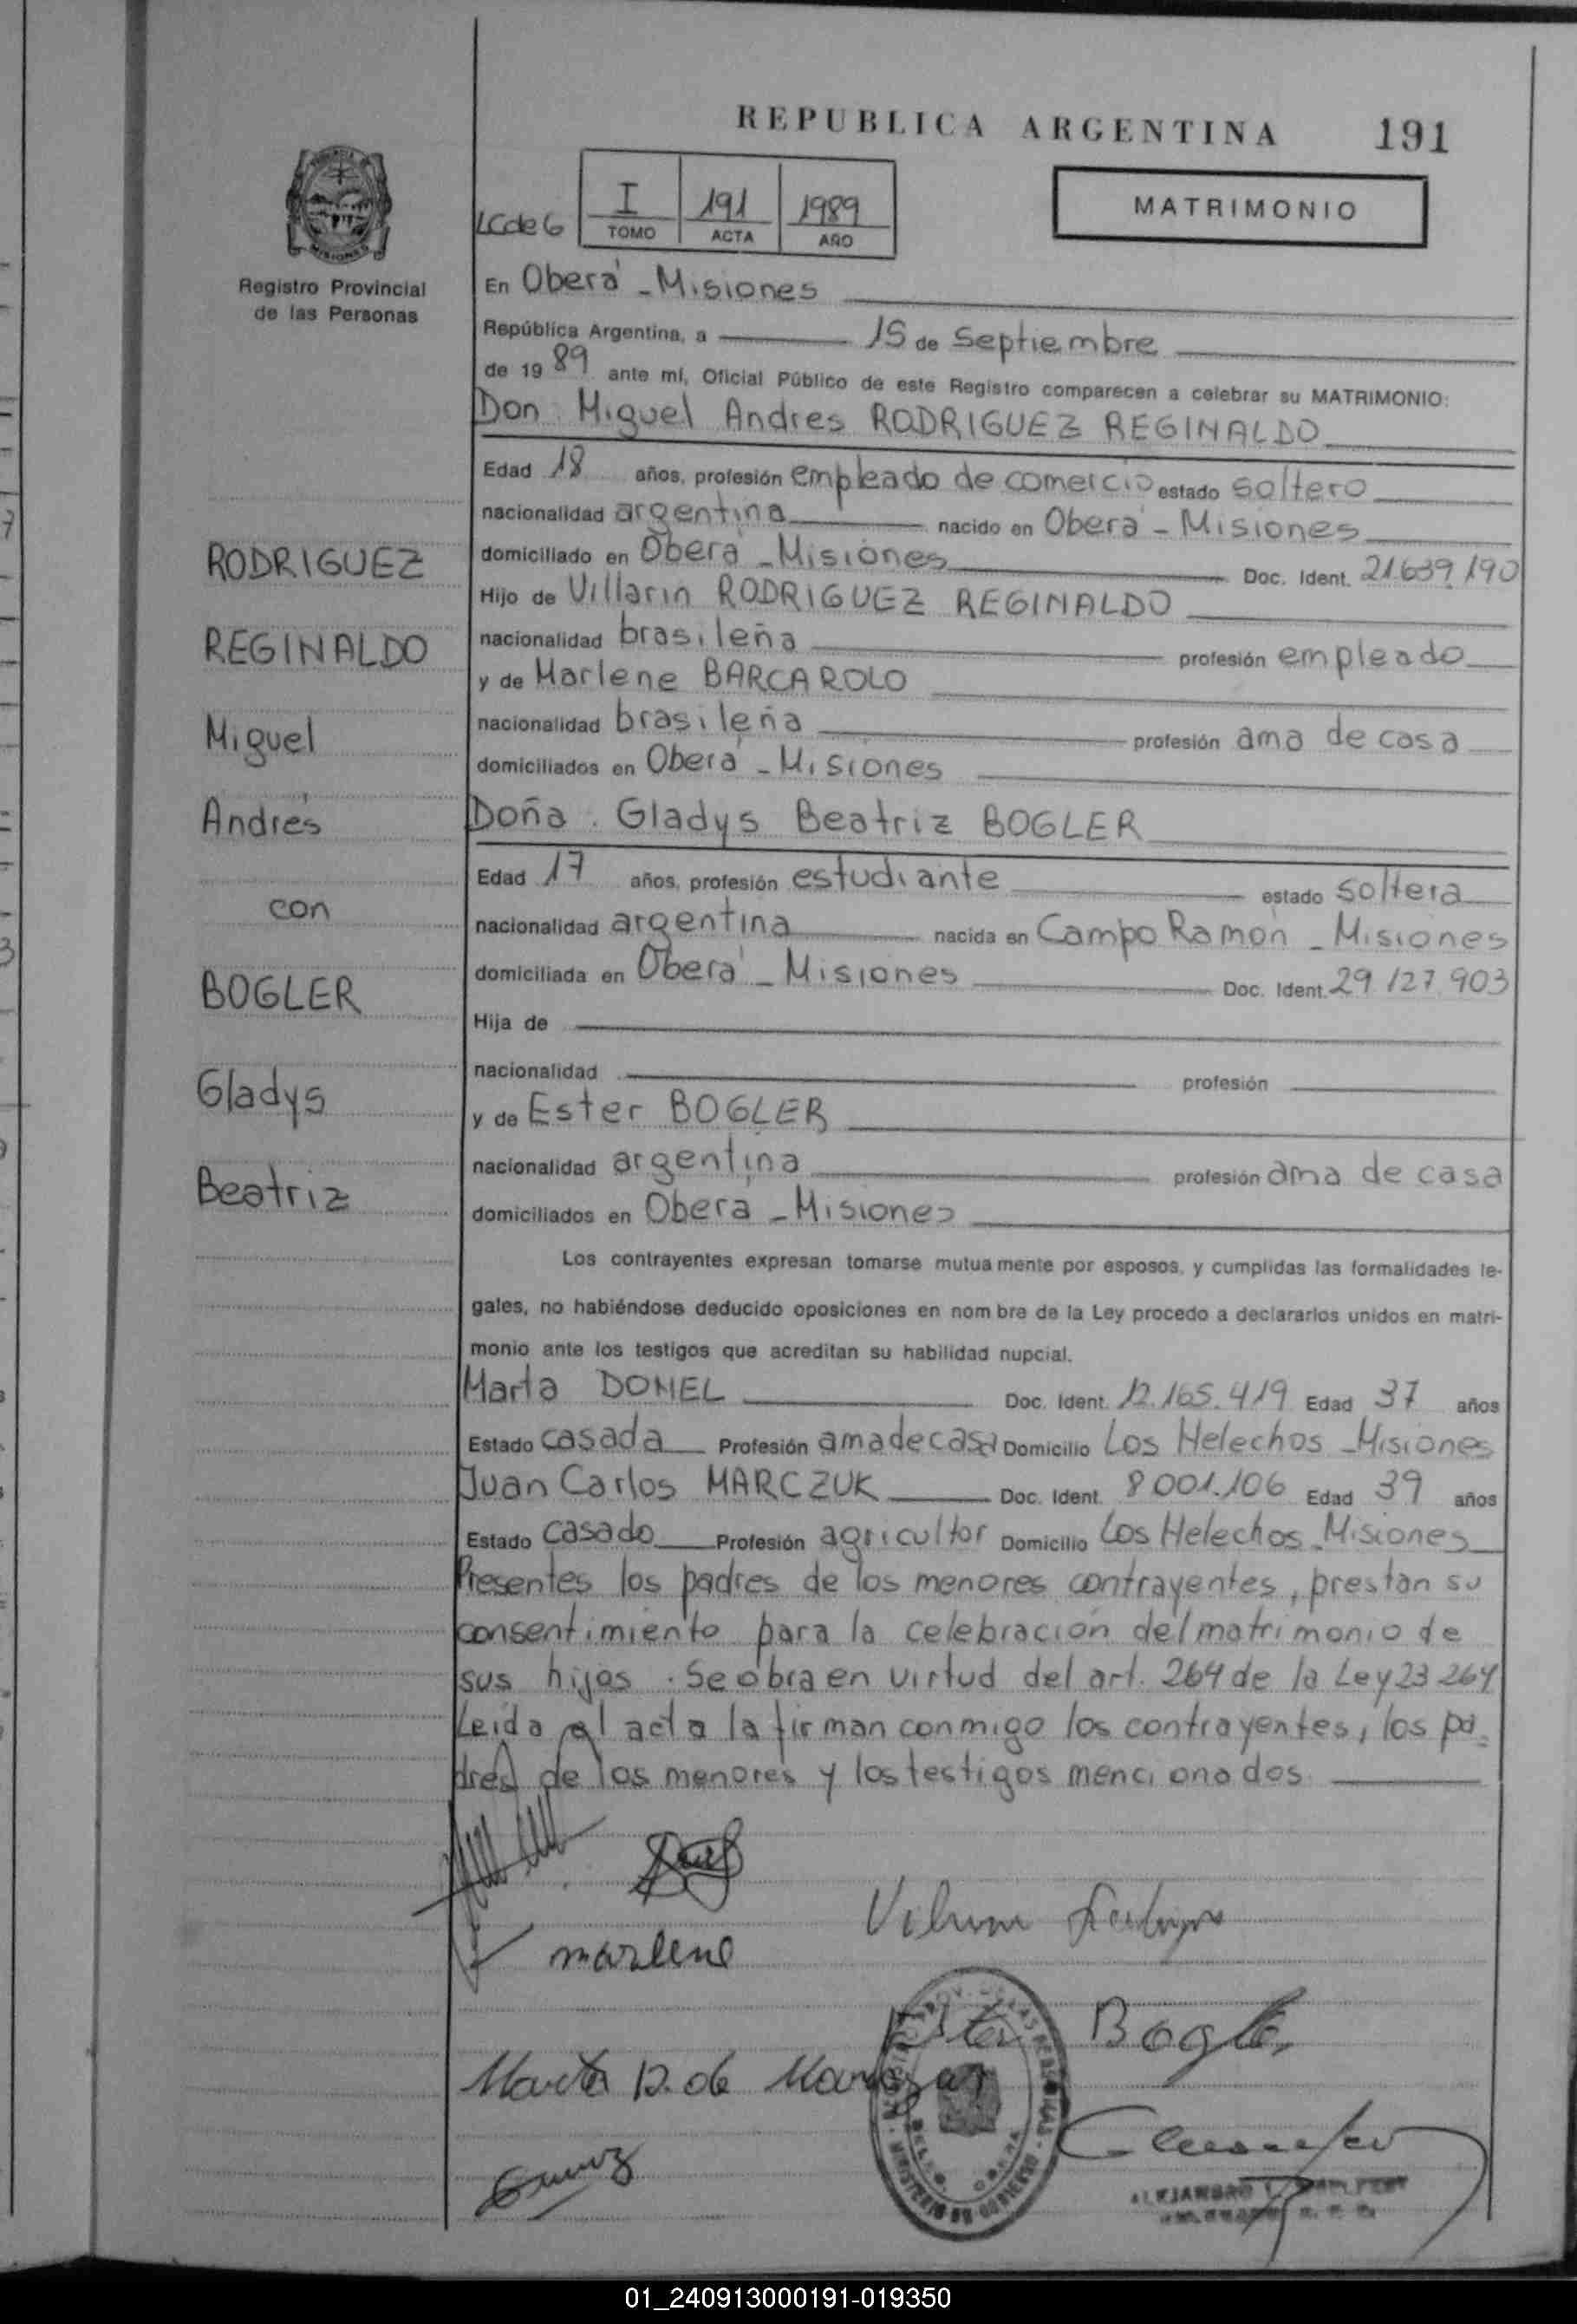 REPUBLICA ARGENTINA 191
I 191 1989
TOMO ACTA AÑO
MATRIMONIO
LCde6
Registro Provincial
de las Personas
En Oberá - Misiones
República Argentina, a 15 de septiembre
de 1989 ante mí, Oficial Público de este Registro comparecen a celebrar su MATRIMONIO:
Don Miguel Andres RODRIGUEZ REGINALDO
Edad 18 años, profesión empleado de comercio estado soltero
nacionalidad argentina nacido en Oberá - Misiones
domiciliado en Oberá - Misiones Doc. Ident. 21.639.190
Hijo de Villarin RODRIGUEZ REGINALDO
nacionalidad brasileña profesión empleado
y de Marlene BARCAROLO
nacionalidad brasileña profesión ama de casa
domiciliados en Oberá - Misiones
Doña Gladys Beatriz BOGLER
Edad 17 años, profesión estudiante estado soltera
nacionalidad argentina nacida en Campo Ramon - Misiones
domiciliada en Oberá - Misiones Doc. Ident. 29.127.903
Hija de
nacionalidad profesión
y de Ester BOGLER
nacionalidad argentina profesión ama de casa
domiciliados en Obera - Misiones
RODRIGUEZ
REGINALDO
Miguel
Andrés
con
BOGLER
Gladys
Beatriz
Los contrayentes expresan tomarse mutuamente por esposos, y cumplidas las formalidades le-
gales, no habiéndose deducido oposiciones en nombre de la Ley procedo a declararlos unidos en matri-
monio ante los testigos que acreditan su habilidad nupcial.
Marta DOMEL Doc. Ident. 12.165.419 Edad 37 años
Estado casada Profesión ama de casa Domicilio Los Helechos - Misiones
Juan Carlos MARCZUK Doc. Ident. 8001.106 Edad 39 años
Estado casado Profesión agricultor Domicilio Los Helechos - Misiones
Presentes los padres de los menores contrayentes, prestan su
consentimiento para la celebración del matrimonio de
sus hijos. Se obra en virtud del art. 264 de la Ley 23 264
Leída el acta la firman conmigo los contrayentes, los pa=
dres de los menores y los testigos mencionados
marlene
Ester Bogler
Marta D. de
01_240913000191-019350